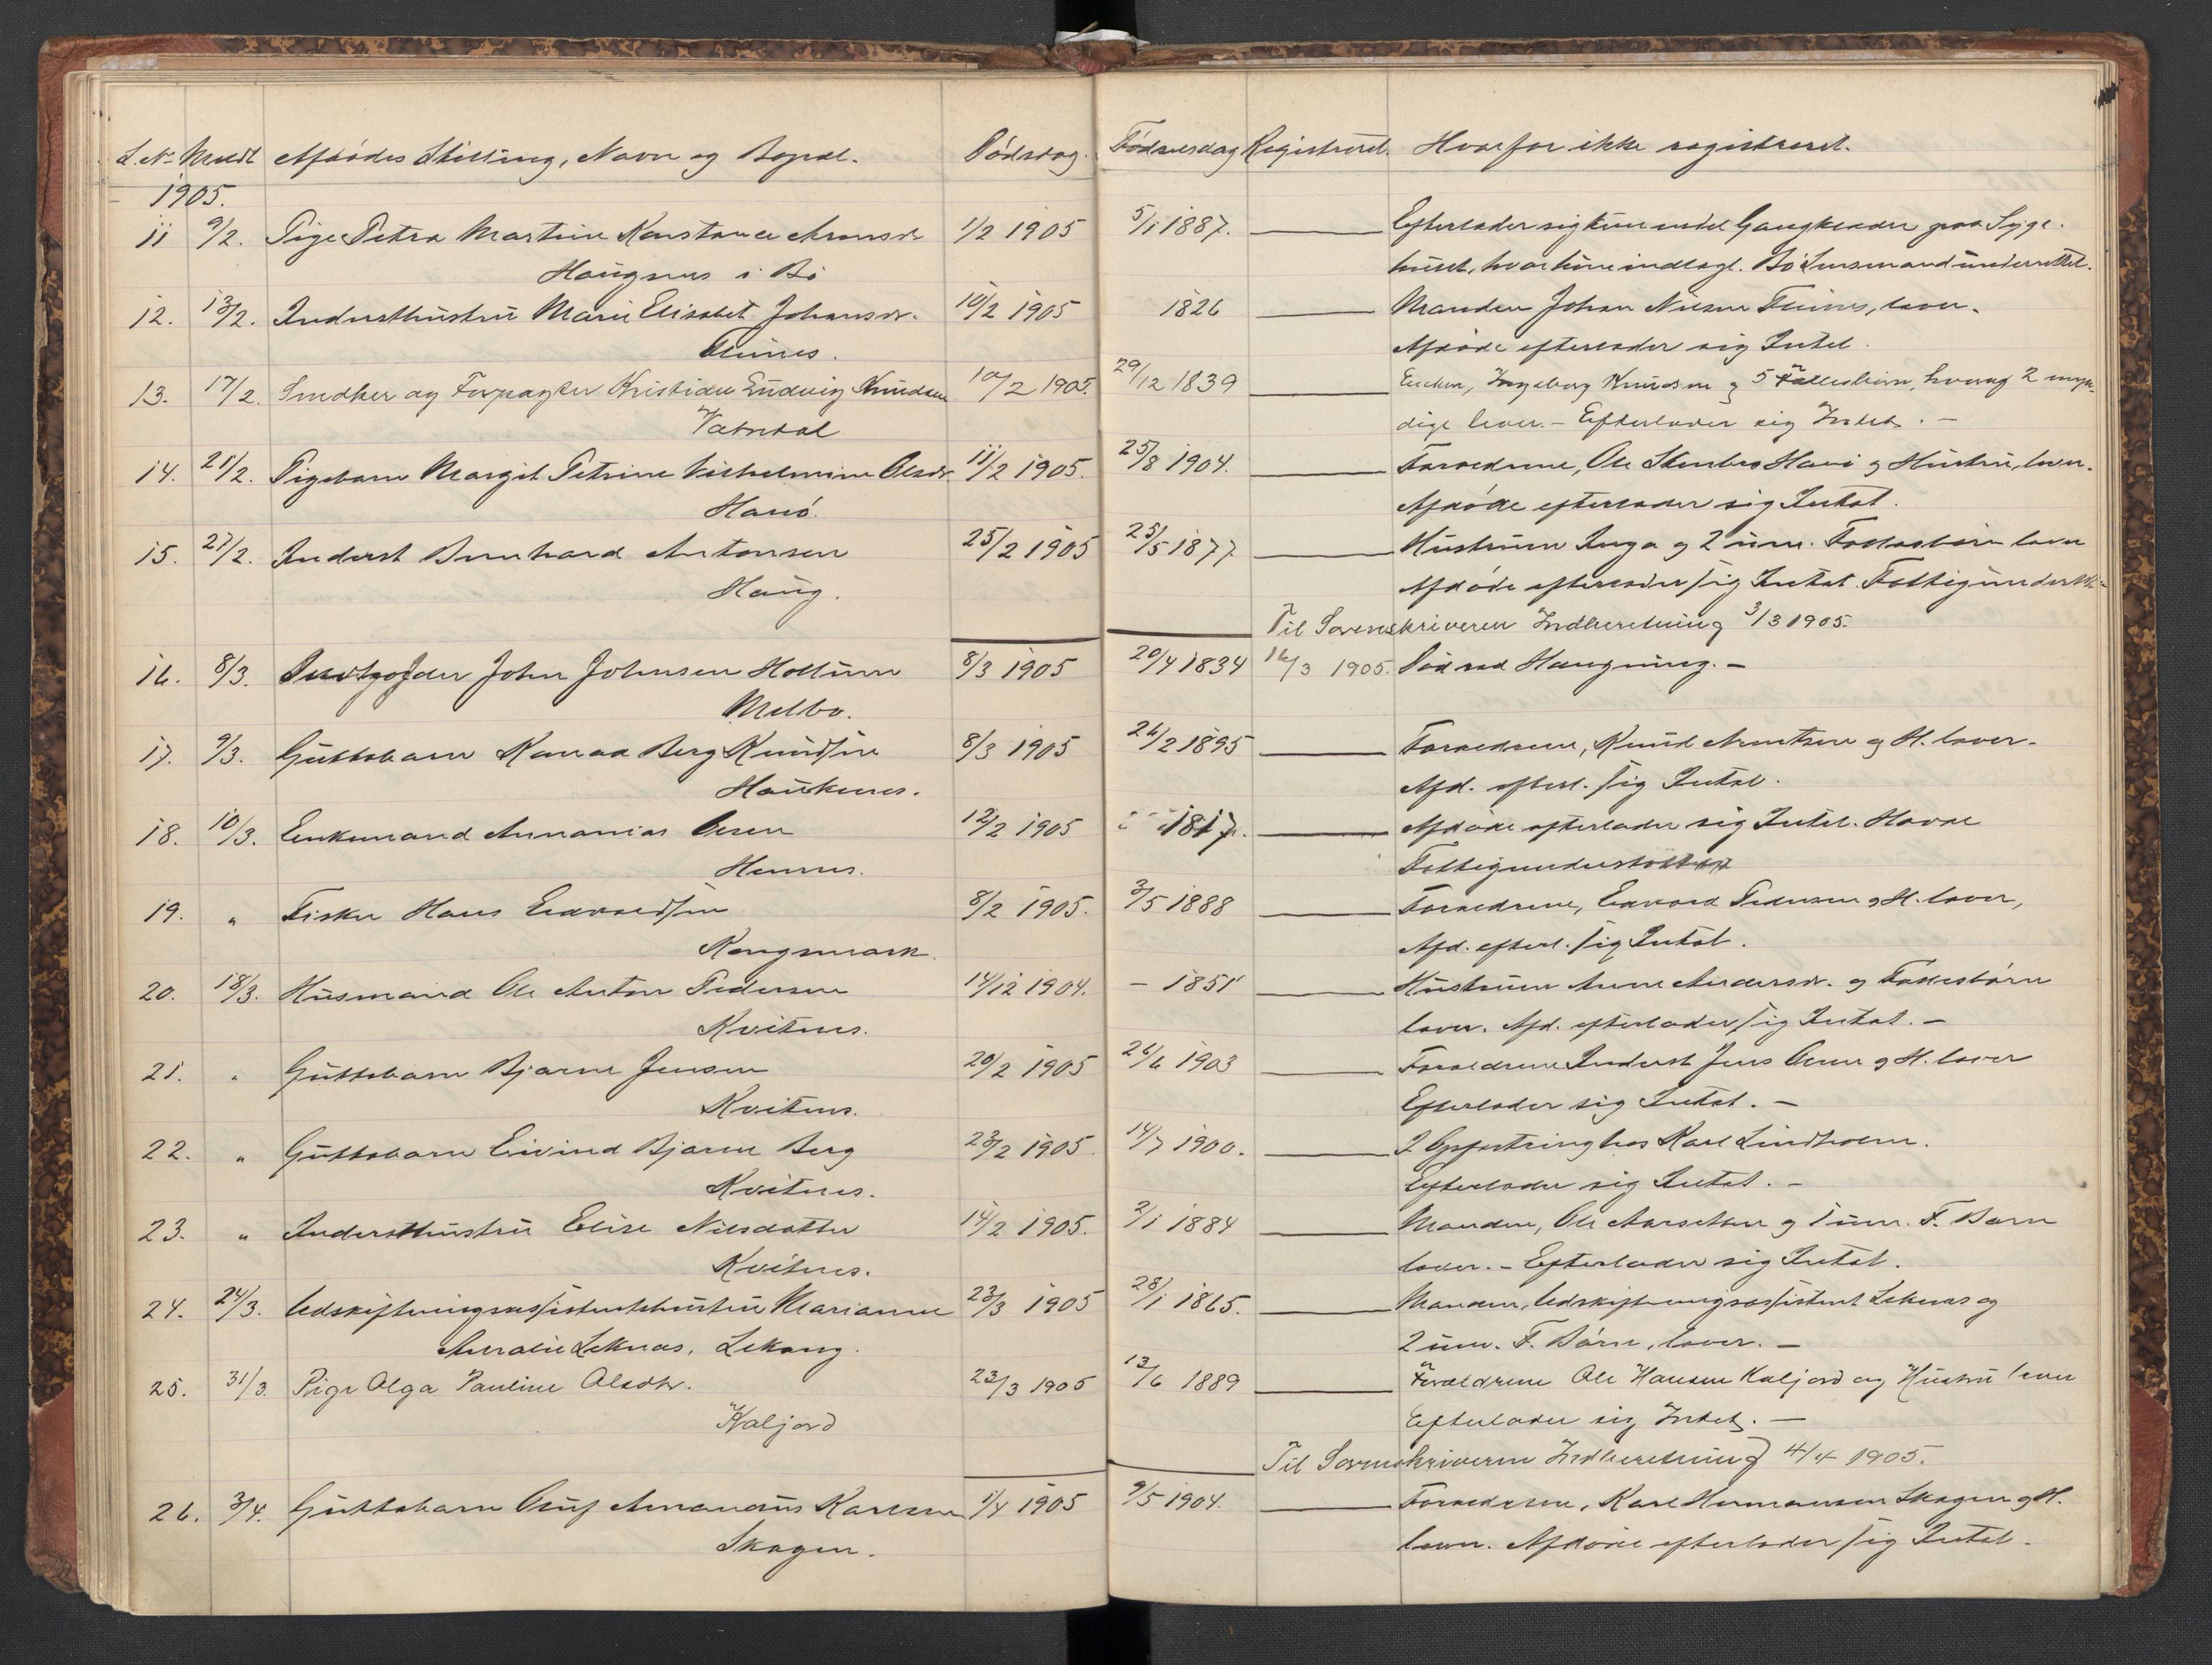 L. No Meldt Afdødes Stilling, Navn og Bopæl. Dødsdag. Fødselsdag Registreret. Hvorfor ikke registreret.
1905.
11 9/2. Pige Petra Martine Konstance Aronsdr 1/2 1905 5/1 1887. Efterlader sig kun endel Gangklæder paa Syge-
Haugsnes i Bø huset, hvor hun indlagt. Bø Lensmand underrettet.
12. 13/2. Indersthustru Marie Elisabet Johansdr. 10/2 1905 1826 Manden Johan Nilsen, lever.
Afdøde efterlader sig Intet.
13. 17/2. Snedker og Forpagter Kristian Ludvig Knudsen 10/2 1905. 29/12 1839 Enken, Ingeborg Knudsen og 5 Fællesbörn, hvoraf 2 myn-
Vatndal dige lever. - Efterlader sig Intet. -
14. 21/2. Pigebarn Margit Petrine Vilhelmine Olsdr. 11/2 1905. 25/8 1904. Forældrene, Ole Stenbro Hanö og Hustru, lever.
Hanö. Afdøde efterlader sig Intet.
15. 27/2. Inderst Bernhard Antonsen 25/2 1905 25/5 1877 Hustruen Inga og 2 um. Fællesbørn lever
Haug. Afdøde efterlader sig Intet. Fattigunderst.
Til Sorenskriveren Indberetning 3/3 1905.
16. 8/3. John Johnsen 8/3 1905 20/4 1834 16/3 1905. Død ved Hængning. -
Melbo.
17. 9/3. Guttebarn Konrad Berg Knudsen 8/3 1905 26/2 1895 Forældrene, Knud Arntsen og H. lever.
Haukenes. Afd. efterl. sig Intet.
18. 10/3. Enkemand Annanias Olsen 12/2 1905 1817. Afdøde efterlader sig Intet. Havde
Hennes. Fattigunderstøttelse
19. " Fisker Hans Edvardsen 8/2 1905. 3/5 1888 Forældrene, Edvard Pedersen og H. lever,
Kongsmark. Afd. efterl. sig Intet.
20. 18/3. Husmand Ole Anton Pedersen 14/12 1904. - 1851 Hustruen Anne Andersdr. og Fællesbørn
Kvitnes. lever. Afd. efterlader sig Intet. -
21. " Guttebarn Bjarne Jensen 20/2 1905 26/6 1903 Forældrene Inderst Jens Olsen og H. lever
Kvitnes. Efterlader sig Intet. -
22. " Guttebarn Eivind Bjarne Berg 23/2 1905. 14/7 1900. I Opfostring hos Karl Lindholm.
Kvitnes. Efterlader sig Intet. -
23. " Indersthustru Elise Nilsdatter 14/2 1905. 2/1 1884 Manden, Ole og 1 um. F. Barn
Kvitnes. lever. - Efterlader sig Intet.
24. 24/3. Udskiftningsassistentshustru Marianne 23/3 1905 28/1 1865. Manden, Udskiftningsassistent Leknæs og
Amalie Leknæs, Lekang. 2 um. F. Børn, lever. -
25. 31/3. Pige Olga Pauline Olsdtr. 23/3 1905 13/6 1889 Forældrene Ole Hansen Kaljord og Hustru lever
Kaljord Efterlader sig Intet. -
Til Sorenskriveren Indberetning 4/4 1905.
26. 3/4. Guttebarn Oluf Amandus Karlsen 1/4 1905 9/5 1904. Forældrene, Karl Hermansen Skagen og H.
Skagen. lever. Afdøde efterlader sig Intet.